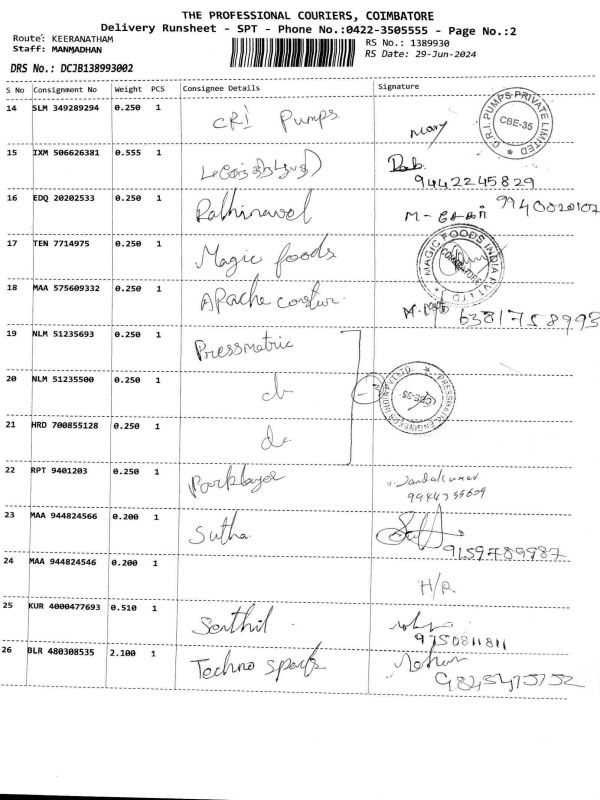 THE PROFESSIONAL COURIERS, COIMBATORE
Delivery Runsheet - SPT - Phone No.:0422-3505555 - Page No.:2
Route: KEERANATHAM
Staff: MANMADHAN
RS No.: 1389930
RS Date: 29-Jun-2024
DRS No.: DCJB138993002
S No Consignment No Weight PCS Consignee Details Signature
14 SLM 349289294 0.250 1 CRI Pumps Mary
C.R.I. PUMPS PRIVATE LIMITED CBE-35
15 IXM 506626381 0.555 1
9442245829
16 EDQ 20202533 0.250 1 Rathinavel 9940020107
17 TEN 7714975 0.250 1 Magic foods
MAGIC FOODS INDIA PVT LTD COIMBATORE
18 MAA 575609332 0.250 1 Apache 6381758993
19 NLM 51235693 0.250 1 Pressmatric
20 NLM 51235500 0.250 1
CBE-35
21 HRD 700855128 0.250 1 do
22 RPT 9401203 0.250 1
9944355609
23 MAA 944824566 0.200 1 Sutha
9159789987
24 MAA 944824546 0.200 1 H/R
25 KUR 4000477693 0.510 1 Senthil
9750811811
26 BLR 480308535 2.100 1 Techno spark Mohan